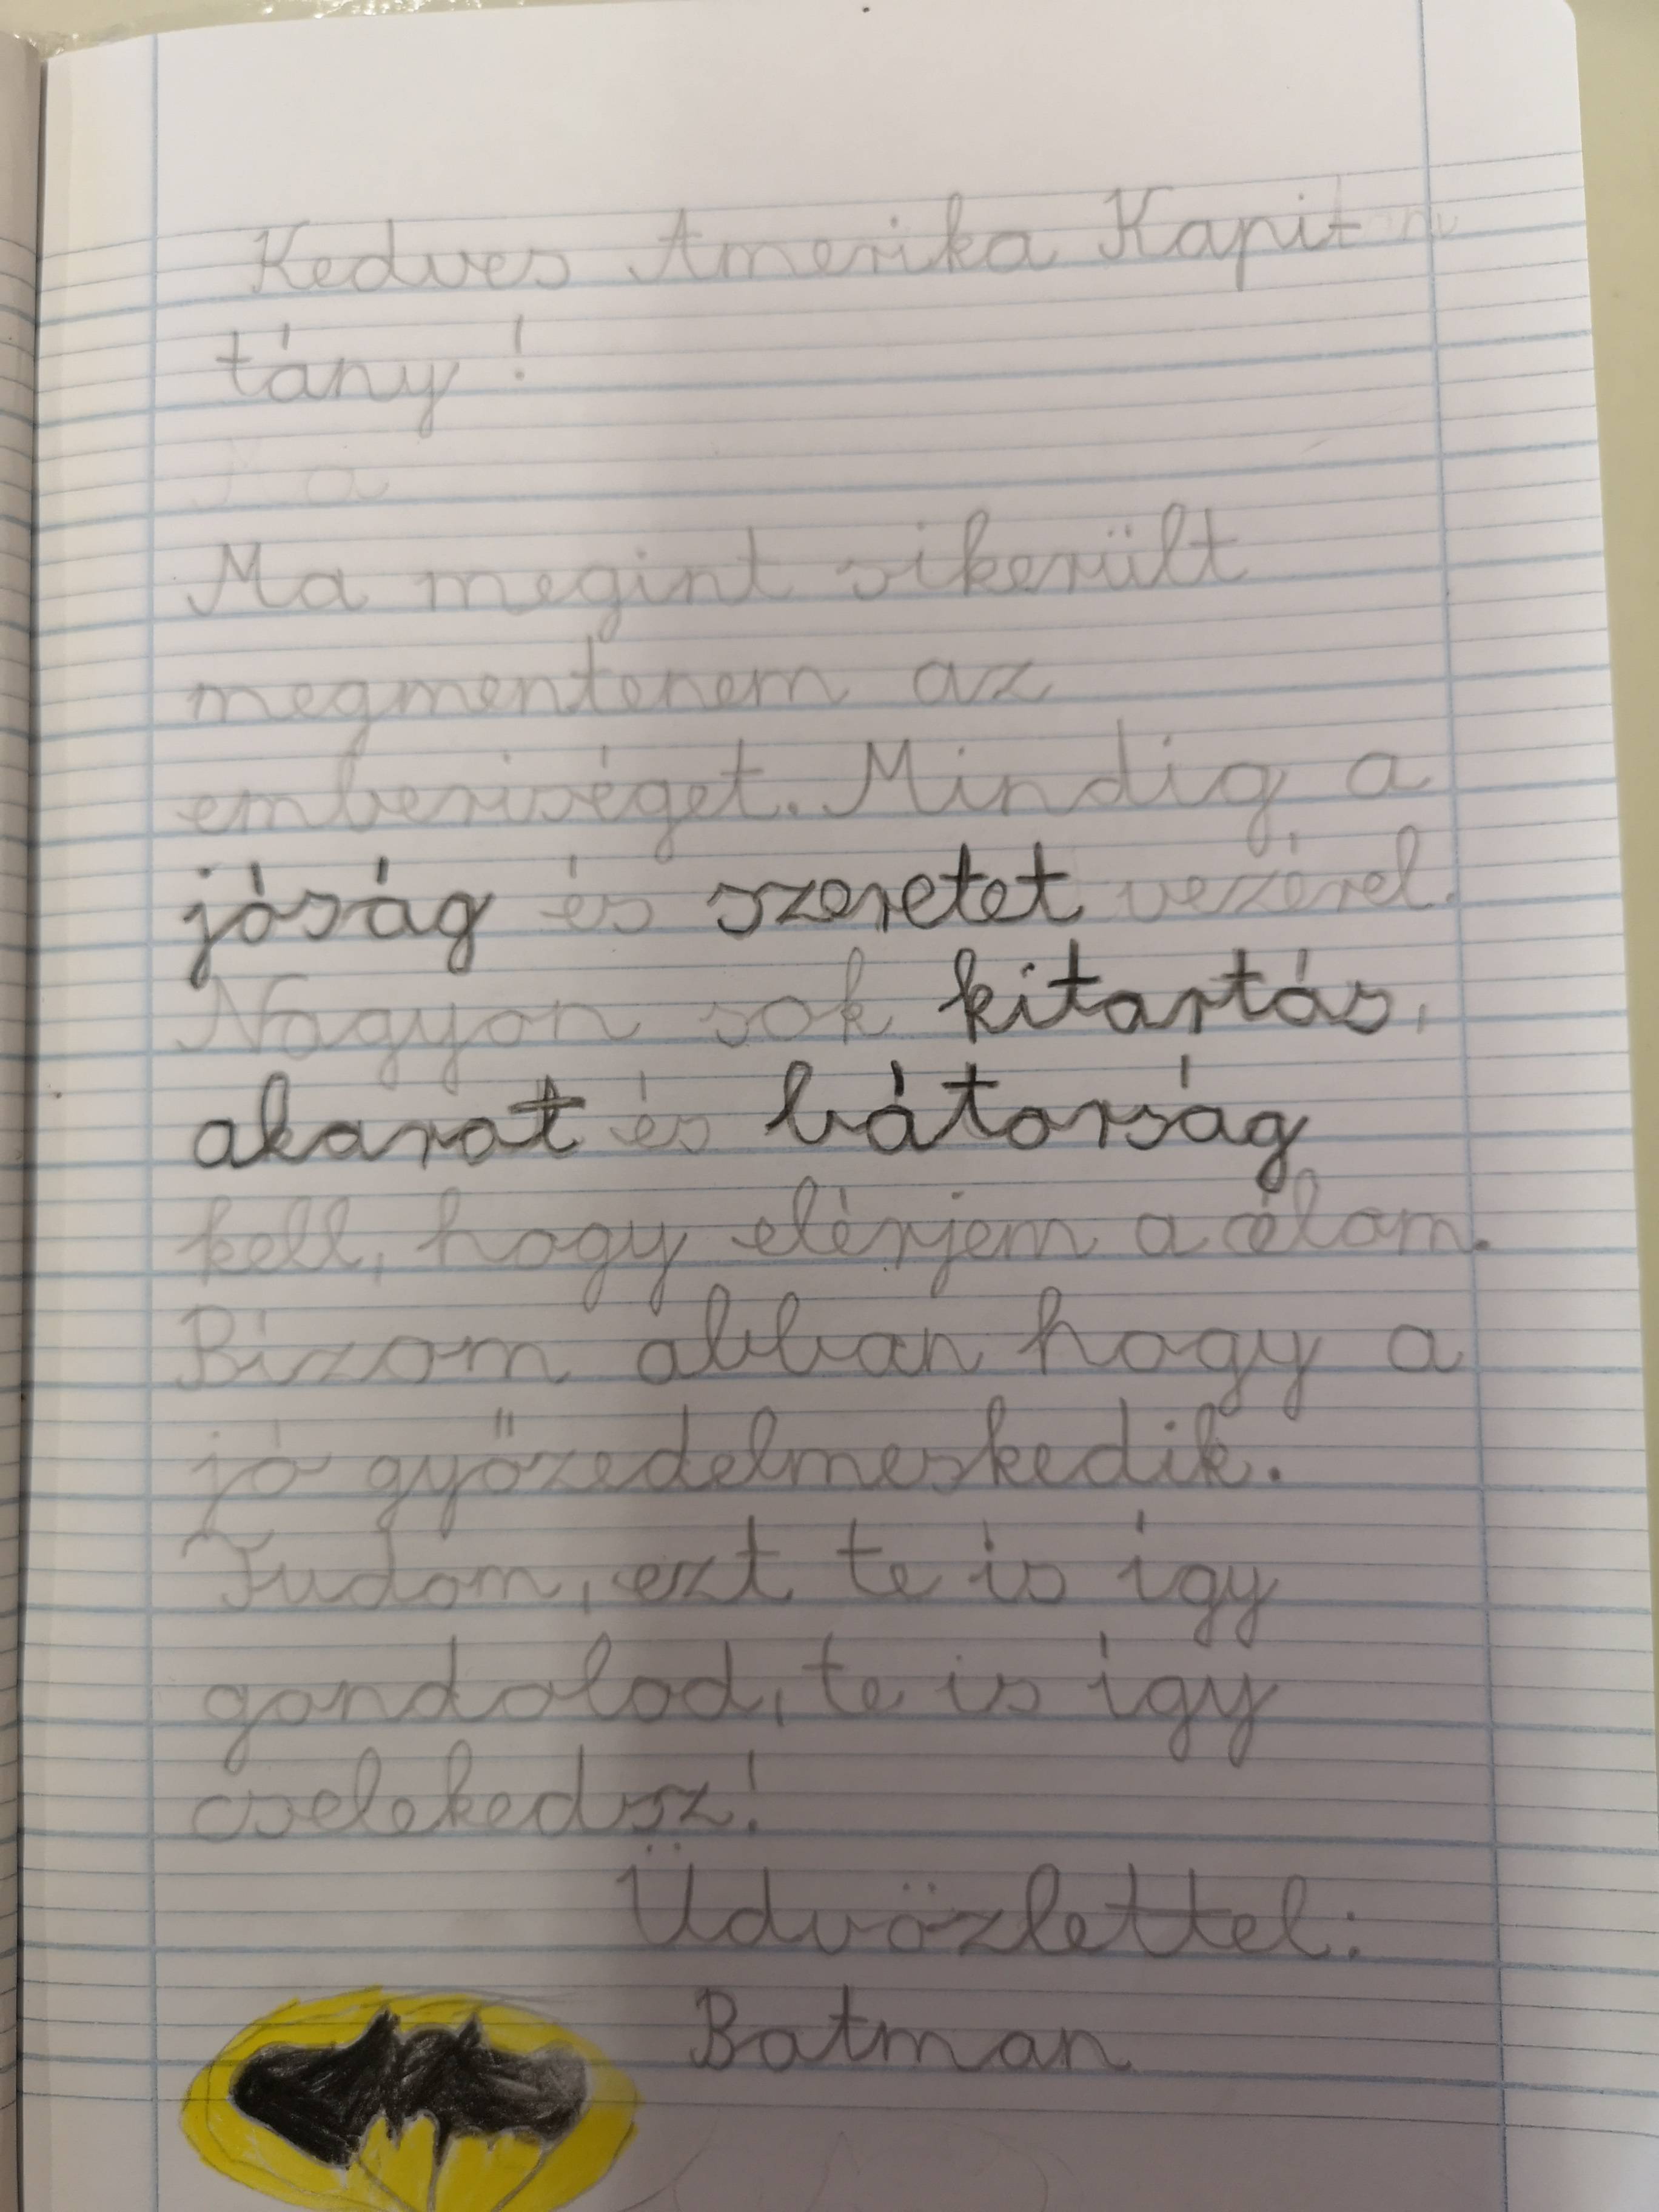 Kedves Amerika Kapit
tány!
Ma
Ma megint sikerült
megmentenem az
emberiséget. Mindig a
jóság és szeretet vezérel.
Nagyon sok kitartás,
akarat és bátorság
kell, hogy elérjem a célom.
Bízom abban hogy a
jó győzedelmeskedik.
Tudom, ezt te is így
gondolod, te is így
cselekedsz!
Üdvözlettel:
Batman